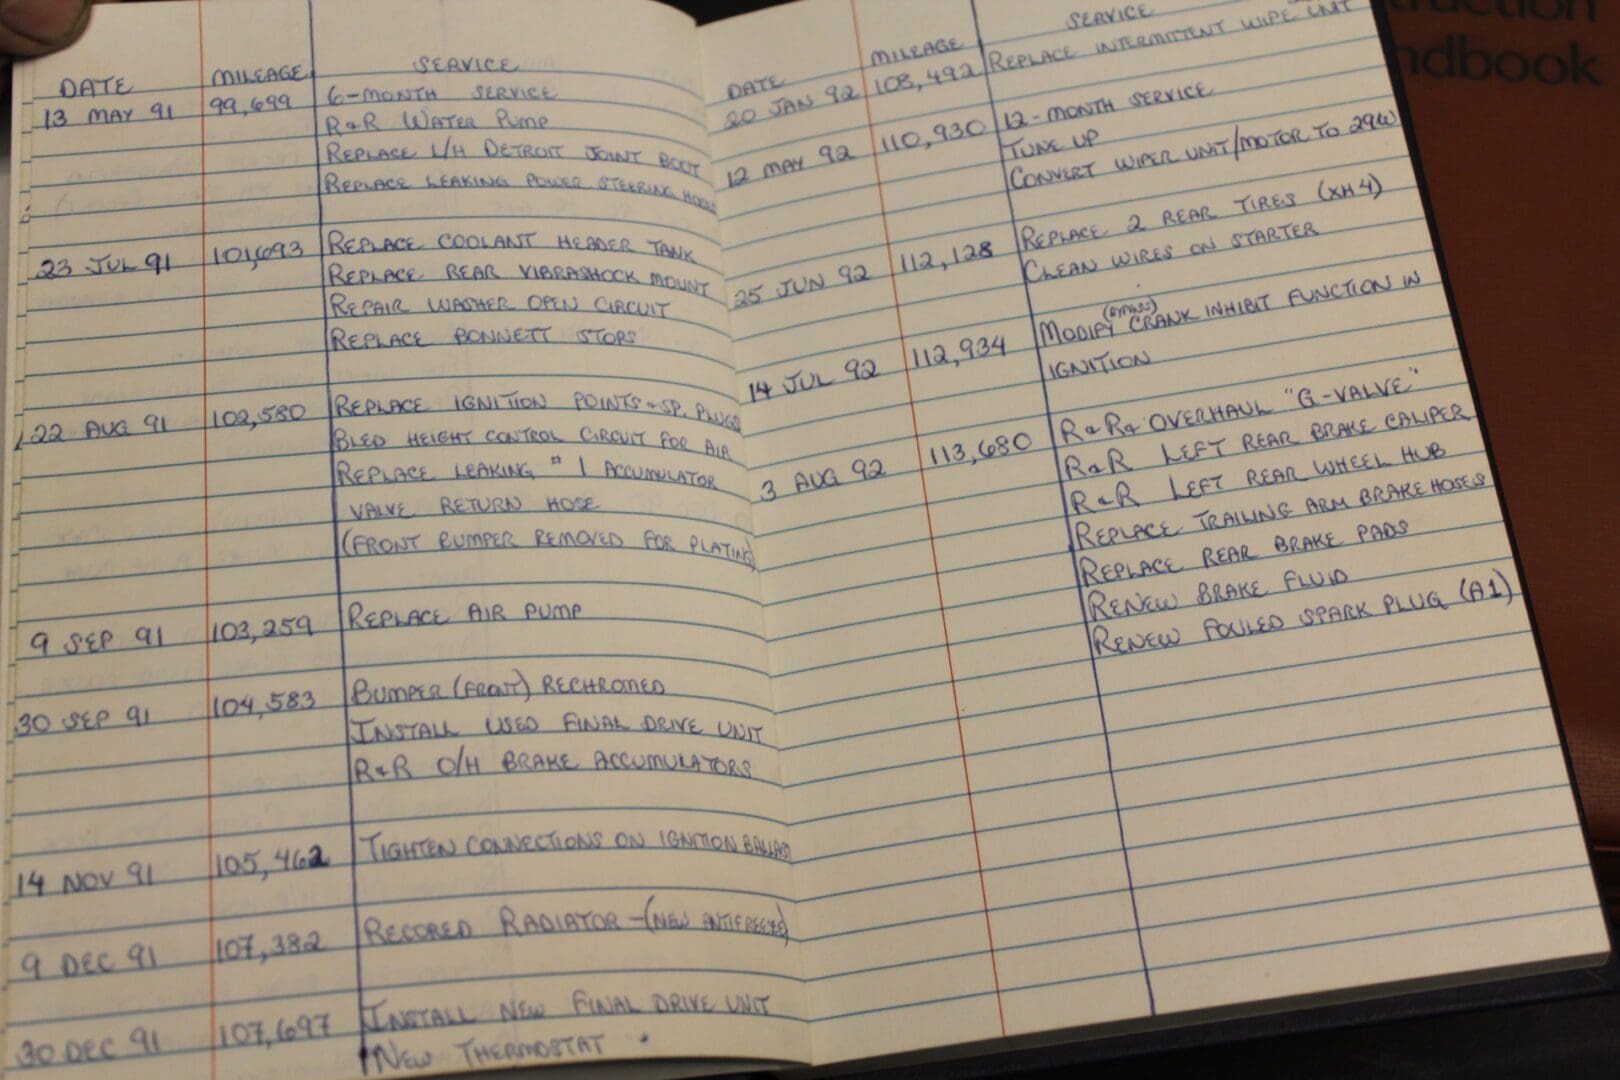 DATE MILEAGE SERVICE
13 MAY 91 99,699 6-MONTH SERVICE
R&R WATER PUMP
REPLACE L/H DETROIT JOINT BOOT
REPLACE LEAKING POWER STEERING HOSES
23 JUL 91 101,693 REPLACE COOLANT HEADER TANK
REPLACE REAR VIBRASHOCK MOUNT
REPAIR WASHER OPEN CIRCUIT
REPLACE BONNETT STOPS
22 AUG 91 102,580 REPLACE IGNITION POINTS & SP. PLUGS
BLED HEIGHT CONTROL CIRCUIT FOR AIR
REPLACE LEAKING #1 ACCUMULATOR
VALVE RETURN HOSE
(FRONT BUMPER REMOVED FOR PLATING)
9 SEP 91 103,259 REPLACE AIR PUMP
30 SEP 91 104,583 BUMPER (FRONT) RECHROMED
INSTALL USED FINAL DRIVE UNIT
R&R O/H BRAKE ACCUMULATORS
14 NOV 91 105,462 TIGHTEN CONNECTIONS ON IGNITION BALLAST
9 DEC 91 107,382 RECORED RADIATOR - (NEW ANTIFREEZE)
30 DEC 91 107,697 INSTALL NEW FINAL DRIVE UNIT
NEW THERMOSTAT
DATE MILEAGE SERVICE
20 JAN 92 108,492 REPLACE INTERMITTENT WIPE UNIT
12 MAY 92 110,930 12-MONTH SERVICE
TUNE UP
CONVERT WIPER UNIT/MOTOR TO 29W
25 JUN 92 112,128 REPLACE 2 REAR TIRES (XH4)
CLEAN WIRES ON STARTER
14 JUL 92 112,934 MODIFY (BYPASS) CRANK INHIBIT FUNCTION IN
IGNITION
3 AUG 92 113,680 R&R & OVERHAUL "G-VALVE"
R&R LEFT REAR BRAKE CALIPER
R&R LEFT REAR WHEEL HUB
REPLACE TRAILING ARM BRAKE HOSES
REPLACE REAR BRAKE PADS
RENEW BRAKE FLUID
RENEW FOULED SPARK PLUG (A1)
ruction
ndbook